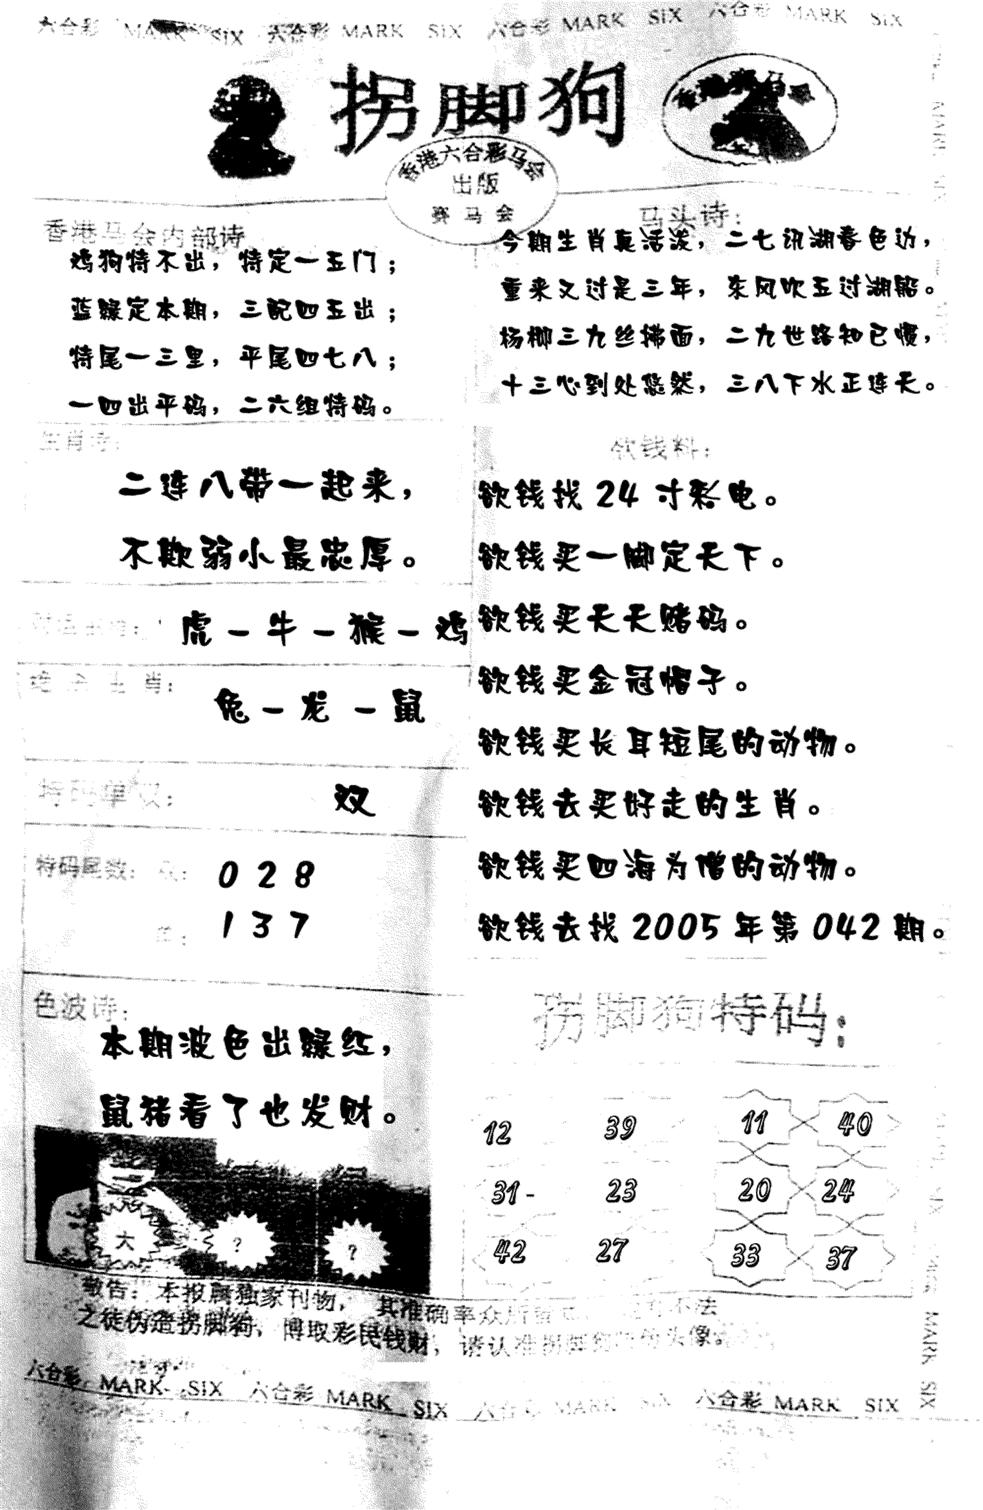 六合彩 MARK SIX 六合彩 MARK SIX 六合彩 MARK SIX 六合彩 MARK SIX
拐脚狗
香港赛马会
香港六合彩马会
出版
赛马会
香港马会内部诗
鸡狗特不出，特定一五门；
蓝绿定本期，三配四五出；
特尾一三里，平尾四七八；
一四出平码，二六组特码。
马头诗：
今期生肖真活泼，二七讯湖春色边，
重来又过是三年，东风吹五过湖船。
杨柳三九丝拂面，二九世路知已惯，
十三心到处悠然，三八下水正连天。
生肖诗：
二连八带一起来，
不欺弱小最忠厚。
虎－牛－猴－鸡
绝杀生肖：
兔－龙－鼠
特码单双：
双
特码尾数：双：
0 2 8
单：
1 3 7
色波诗：
本期波色出绿红，
鼠猪看了也发财。
大 ? ?
欲钱料：
欲钱找 24 寸彩电。
欲钱买一脚定天下。
欲钱买天天赌码。
欲钱买金冠帽子。
欲钱买长耳短尾的动物。
欲钱去买好走的生肖。
欲钱买四海为僧的动物。
欲钱去找 2005 年第 042 期。
拐脚狗特码：
12 39 11 40
31- 23 20 24
42 27 33 37
敬告：本报属独家刊物，其准确率众所 不法
之徒伪造拐脚狗，博取彩民钱财，请认准拐脚狗 头像
六合彩 MARK SIX 六合彩 MARK SIX 六合彩 MARK SIX 六合彩 MARK SIX
MARK SIX
MARK SIX